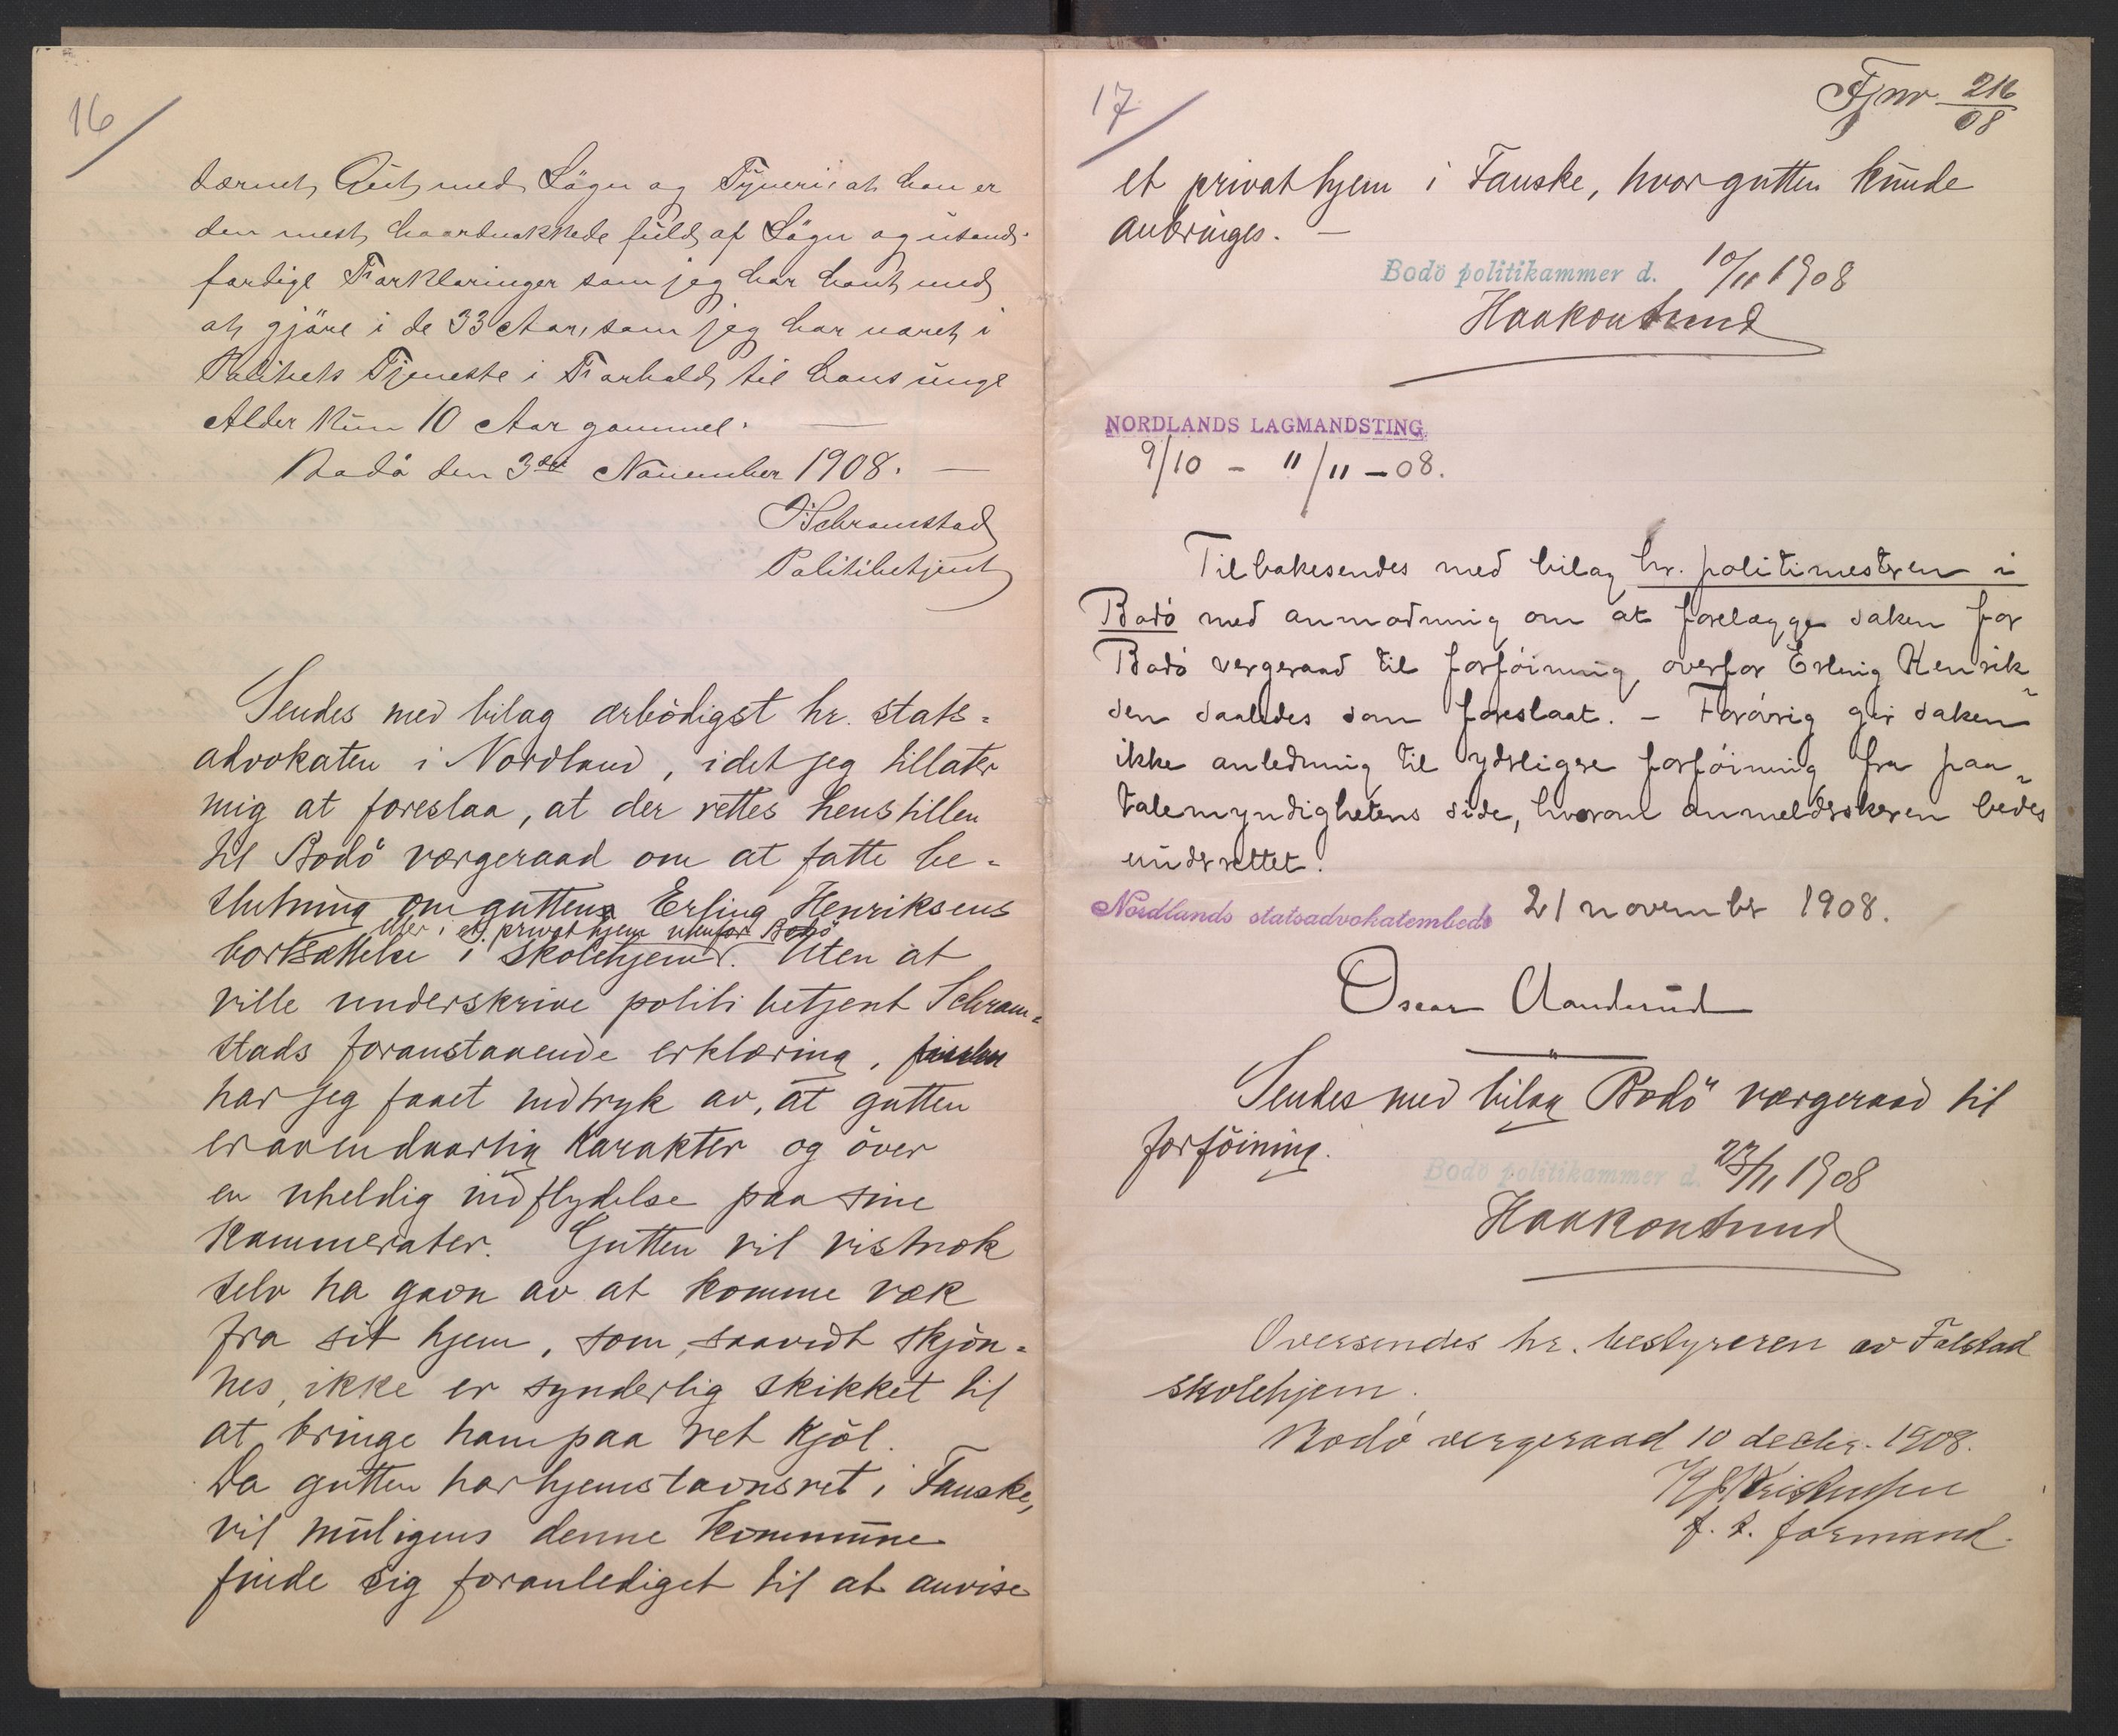 16
særnet, Gut, med Lögn og Tyveri, at han er
den mest haardnakkede fuld af Lögn og usand-
færdige Forklaringer som jeg har havt med
at gjöre i de 33 Aar, som jeg har været i
Politiets Tjeneste i Forhold til hans unge
Alder kun 10 Aar gammel. —
Bodö den 3die November 1908. —
Schramstad
Politibetjent
Sendes med bilag ærbödigst hr. stats=
advokaten i Nordland, idet jeg tillater
mig at foreslaa, at der rettes henstillen
til Bodö værgeraad om at fatte be=
slutning om guttens Erling Henriksens
eller i et privat hjem utenfor Bodö
bortsættelse i skolehjem. Uten at
ville underskrive politibetjent Schram=
stads foranstaaende erklæring,
har jeg faaet indtryk av, at gutten
er av en daarlig karakter og över
en uheldig indflydelse paa sine
kammerater. Gutten vil vistnok
selv ha gavn av at komme væk
fra sit hjem, som, saavidt skjön=
nes, ikke er synderlig skikket til
at bringe ham paa ret kjöl.
Da gutten har hjemstavnsret i Fauske,
vil muligens denne kommune
finde sig foranlediget til at anvise
17
Fjnr 216/08
et privat hjem i Fauske, hvor gutten kunde
anbringes. —
Bodö politikammer d. 10/11 1908
Haakon Sund
NORDLANDS LAGMANDSTING
9/10 - 11/11 - 08.
Tilbakesendes med bilag hr. politimesteren i
Bodö med anmodning om at forelægge saken for
Bodö vergeraad til forföining overfor Erling Henrik-
sen saaledes som foreslaat. - Forövrig gir saken
ikke anledning til yderligere forföining fra paa-
talemyndighetens side, hvorom anmelderskeren bedes
underrettet.
Nordlands statsadvokatembede 21 november 1908.
Oscar Aanderud
Sendes med bilag Bodö værgeraad til
forföining.
Bodö politikammer d. 23/11 1908
Haakon Sund
Oversendes hr. bestyreren av Falstad
skolehjem.
Bodö vergeraad 10 decbr. 1908.
Kristensen
f. t. formand.